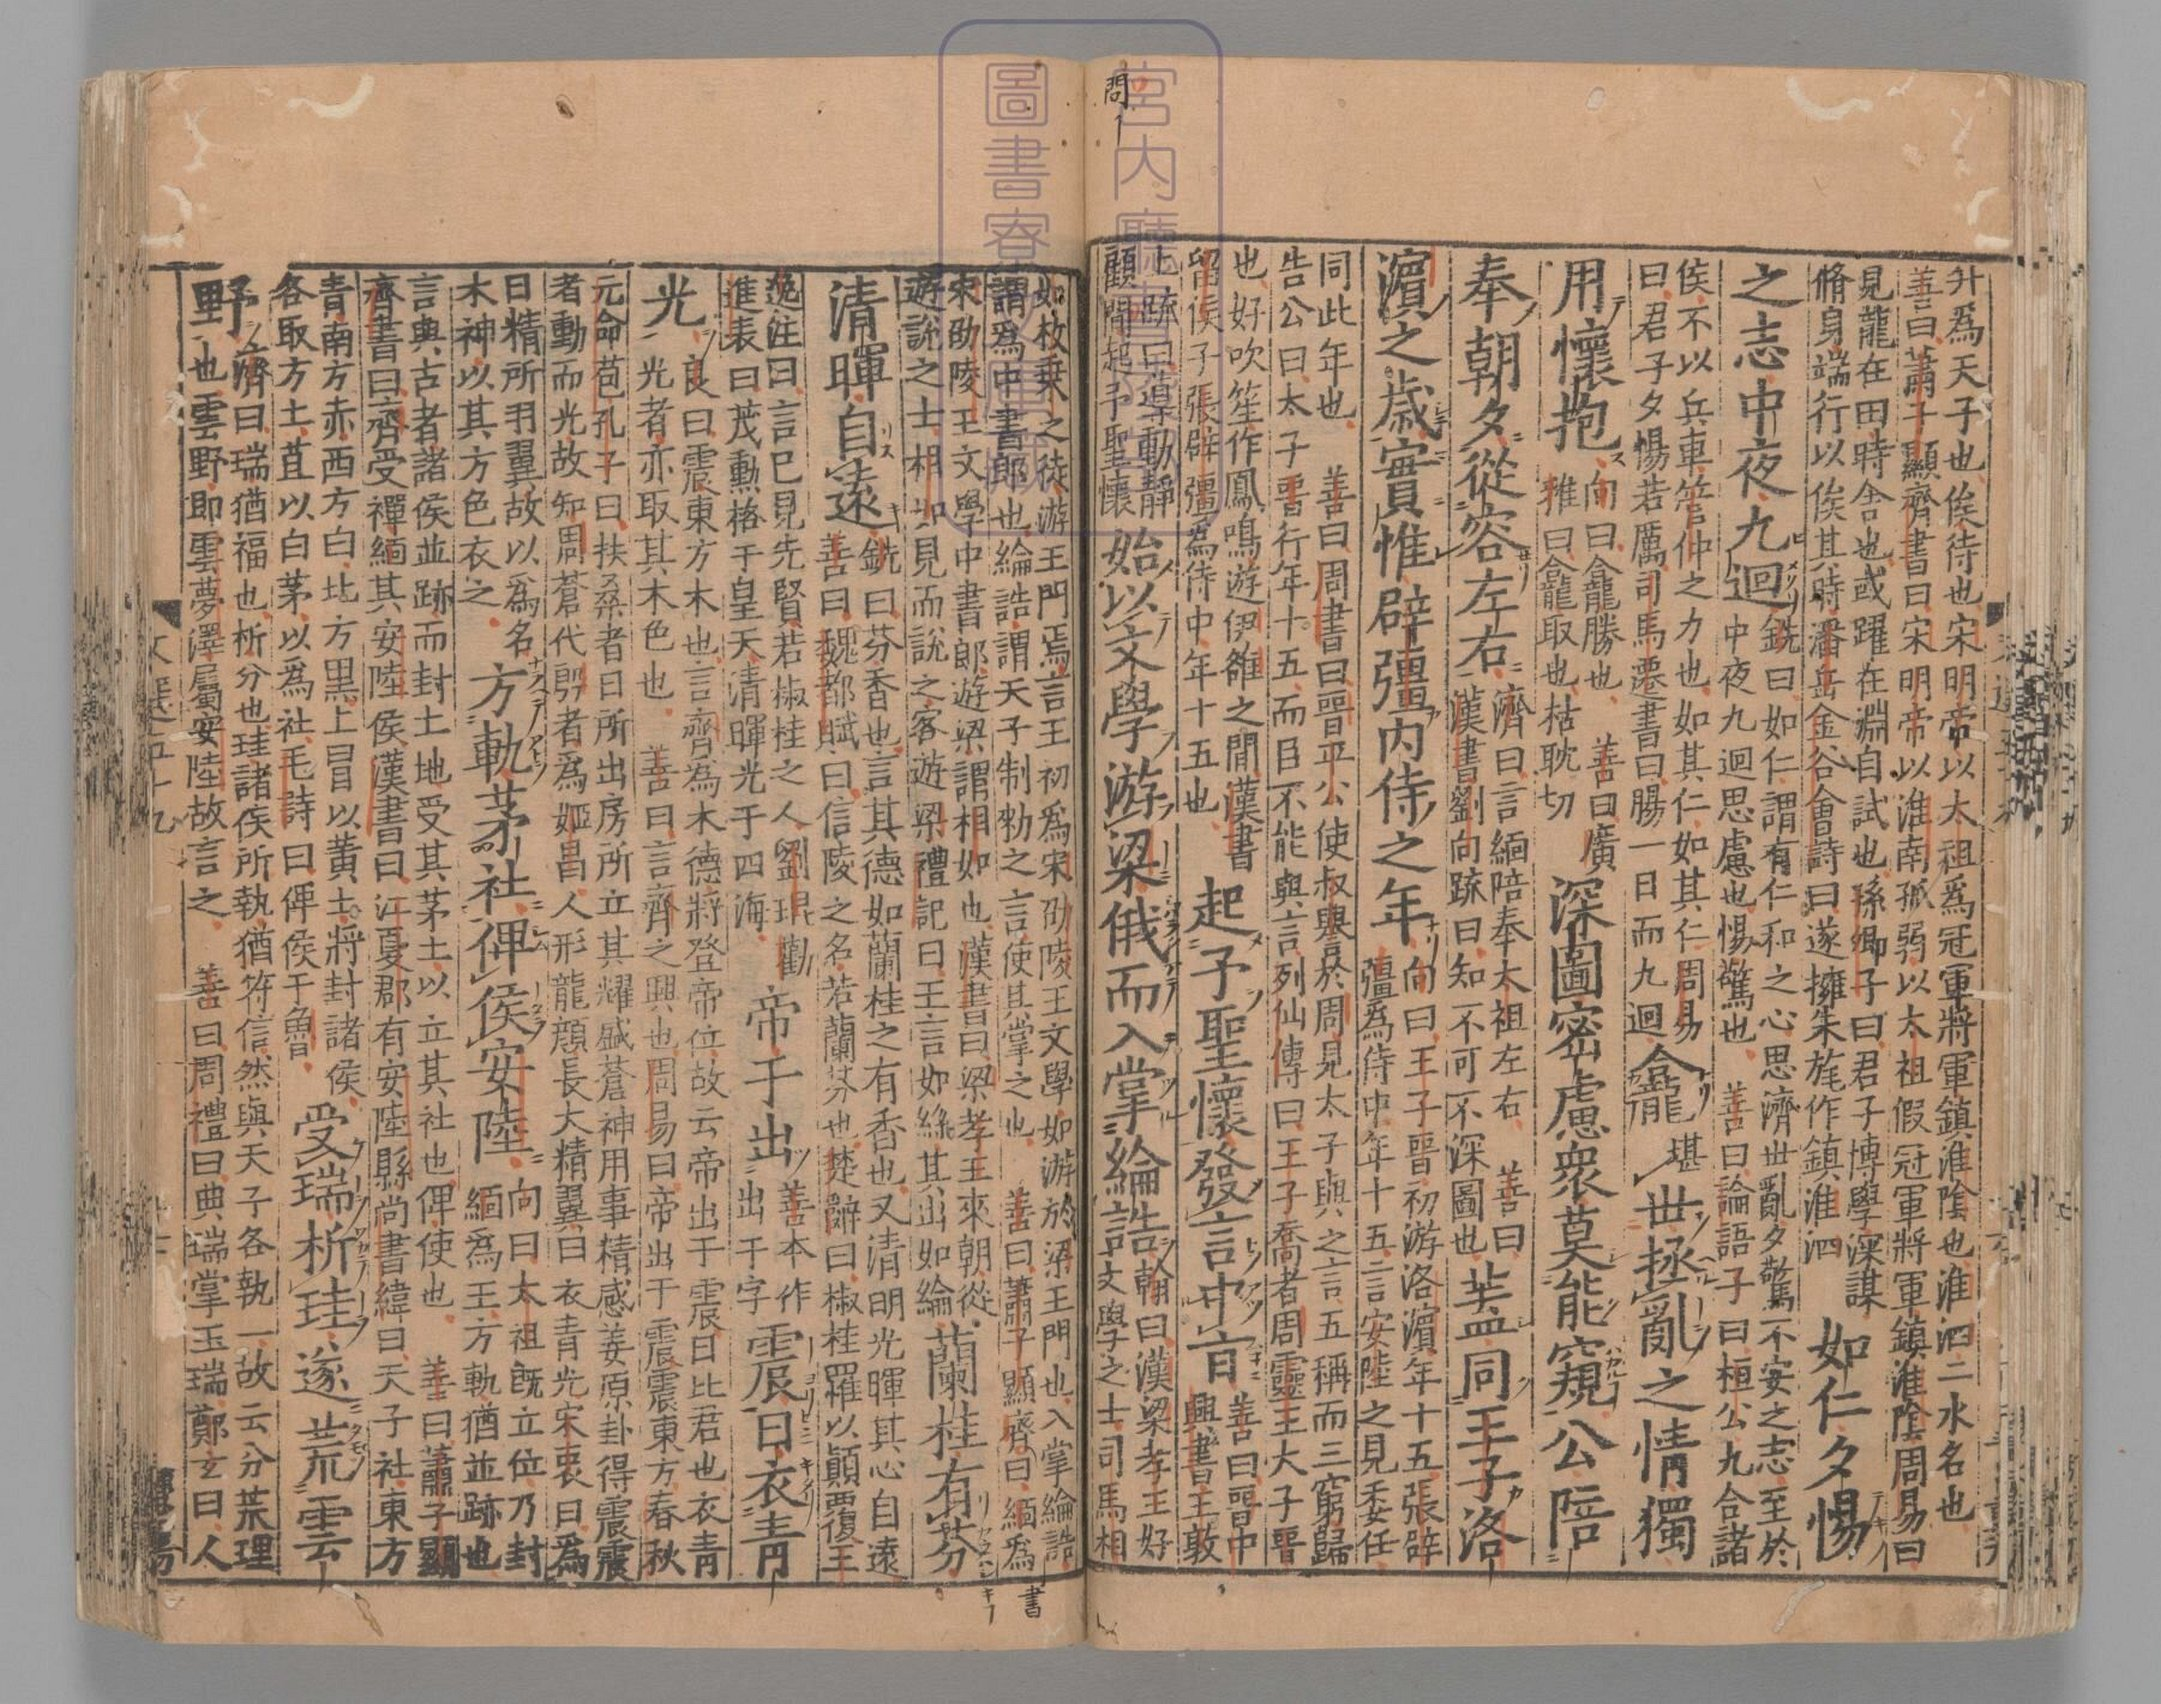 升爲天子也俟待也宋明帝以太祖爲冠軍將軍鎮淮陰也淮泗二水名也
善曰蕭子顯齊書曰宋明帝以淮南孤弱以太祖假冠軍將軍鎮淮陰周易曰
見龍在田時舍也或躍在淵自試也孫卿子曰君子博學深謀
脩身端行以俟其時潘岳金谷會詩曰遂擁朱旄作鎮淮泗
如仁夕惕
之志中夜九迴
銑曰如仁謂有仁和之心思濟世亂夕驚不安之志至於
中夜九迴思慮也惕驚也 善曰論語子曰桓公九合諸
侯不以兵車管仲之力也如其仁如其仁周易
曰君子夕惕若厲司馬遷書曰腸一日而九迴
龕堪世拯亂之情獨
用懷抱
向曰龕勝也 善曰廣
雅曰龕取也枯耽切
深圖密慮衆莫能窺公陪
奉朝夕從容左右
濟曰言緬陪奉太祖左右 善曰
漢書劉向疏曰知不可不深圖也
盖同王子洛
濵之歳實惟辟彊内侍之年
向曰王子晉初游洛濵年十五張辟
彊爲侍中年十五言安陸之見委任
同此年也 善曰周書曰晉平公使叔譽於周見太子與之言五稱而三窮歸
告公曰太子晉行年十五而臣不能與言列仙傳曰王子喬者周靈王大子晉
也好吹笙作鳳鳴游伊雒之間漢書
留侯子張辟彊爲侍中年十五也
起予聖懷發言中旨
善曰晉中
興書王敦
上疏曰導動靜
顧聞起予聖懷
始以文學游梁俄而入掌綸誥
翰曰漢梁孝王好
文學之士司馬相
問
宮内廳
圖書寮文庫
如枚乗之徒游王門焉言王初爲宋劭陵王文學如游於梁王門也入掌綸誥
謂爲中書郎也綸誥謂天子制勑之言使其掌之也 善曰蕭子顯齊書曰緬爲
宋劭陵王文學中書郎遊梁謂相如也漢書曰梁孝王來朝從
遊說之士相如見而說之客遊梁禮記曰王言如絲其出如綸
蘭桂有芬
清暉自遠
銑曰芬香也言其德如蘭桂之有香也又清明光暉其心自遠
善曰魏都賦曰信陵之名若蘭芬也楚辭曰椒桂羅以顛覆王
逸注曰言巳見先賢若椒桂之人劉琨勸
進表曰茂勳格于皇天清暉光于四海
帝子出
善本作
出于字
震日衣青
光
良曰震東方木也言齊爲木德將登帝位故云帝出于震日比君也衣青
光者亦取其木色也 善曰言齊之興也周易曰帝出于震震東方春秋
元命苞孔子曰扶桑者日所出房所立其耀盛蒼神用事精感姜原卦得震震
者動而光故知周蒼代殷者爲姬昌人形龍顔長大精翼日衣青光宋衷曰爲
日精所羽翼故以爲名
木神以其方色衣之
方軌茅社俾侯安陸
向曰太祖旣立位乃封
緬爲王方軌猶並跡也
言典古者諸侯並跡而封土地受其茅土以立其社也俾使也 善曰蕭子顯
齊書曰齊受禪緬其安陸侯漢書曰江夏郡有安陸縣尚書緯曰天子社東方
青南方赤西方白北方黒上冒以黄土將封諸侯
各取方土苴以白茅以爲社毛詩曰俾侯于魯
受瑞析珪遂荒雲
野
濟曰瑞猶福也析分也珪諸侯所執猶符信然與天子各執一故云分荒理
也雲野即雲夢澤屬安陸故言之 善曰周禮曰典瑞掌玉瑞鄭玄曰人
書
文選五十九